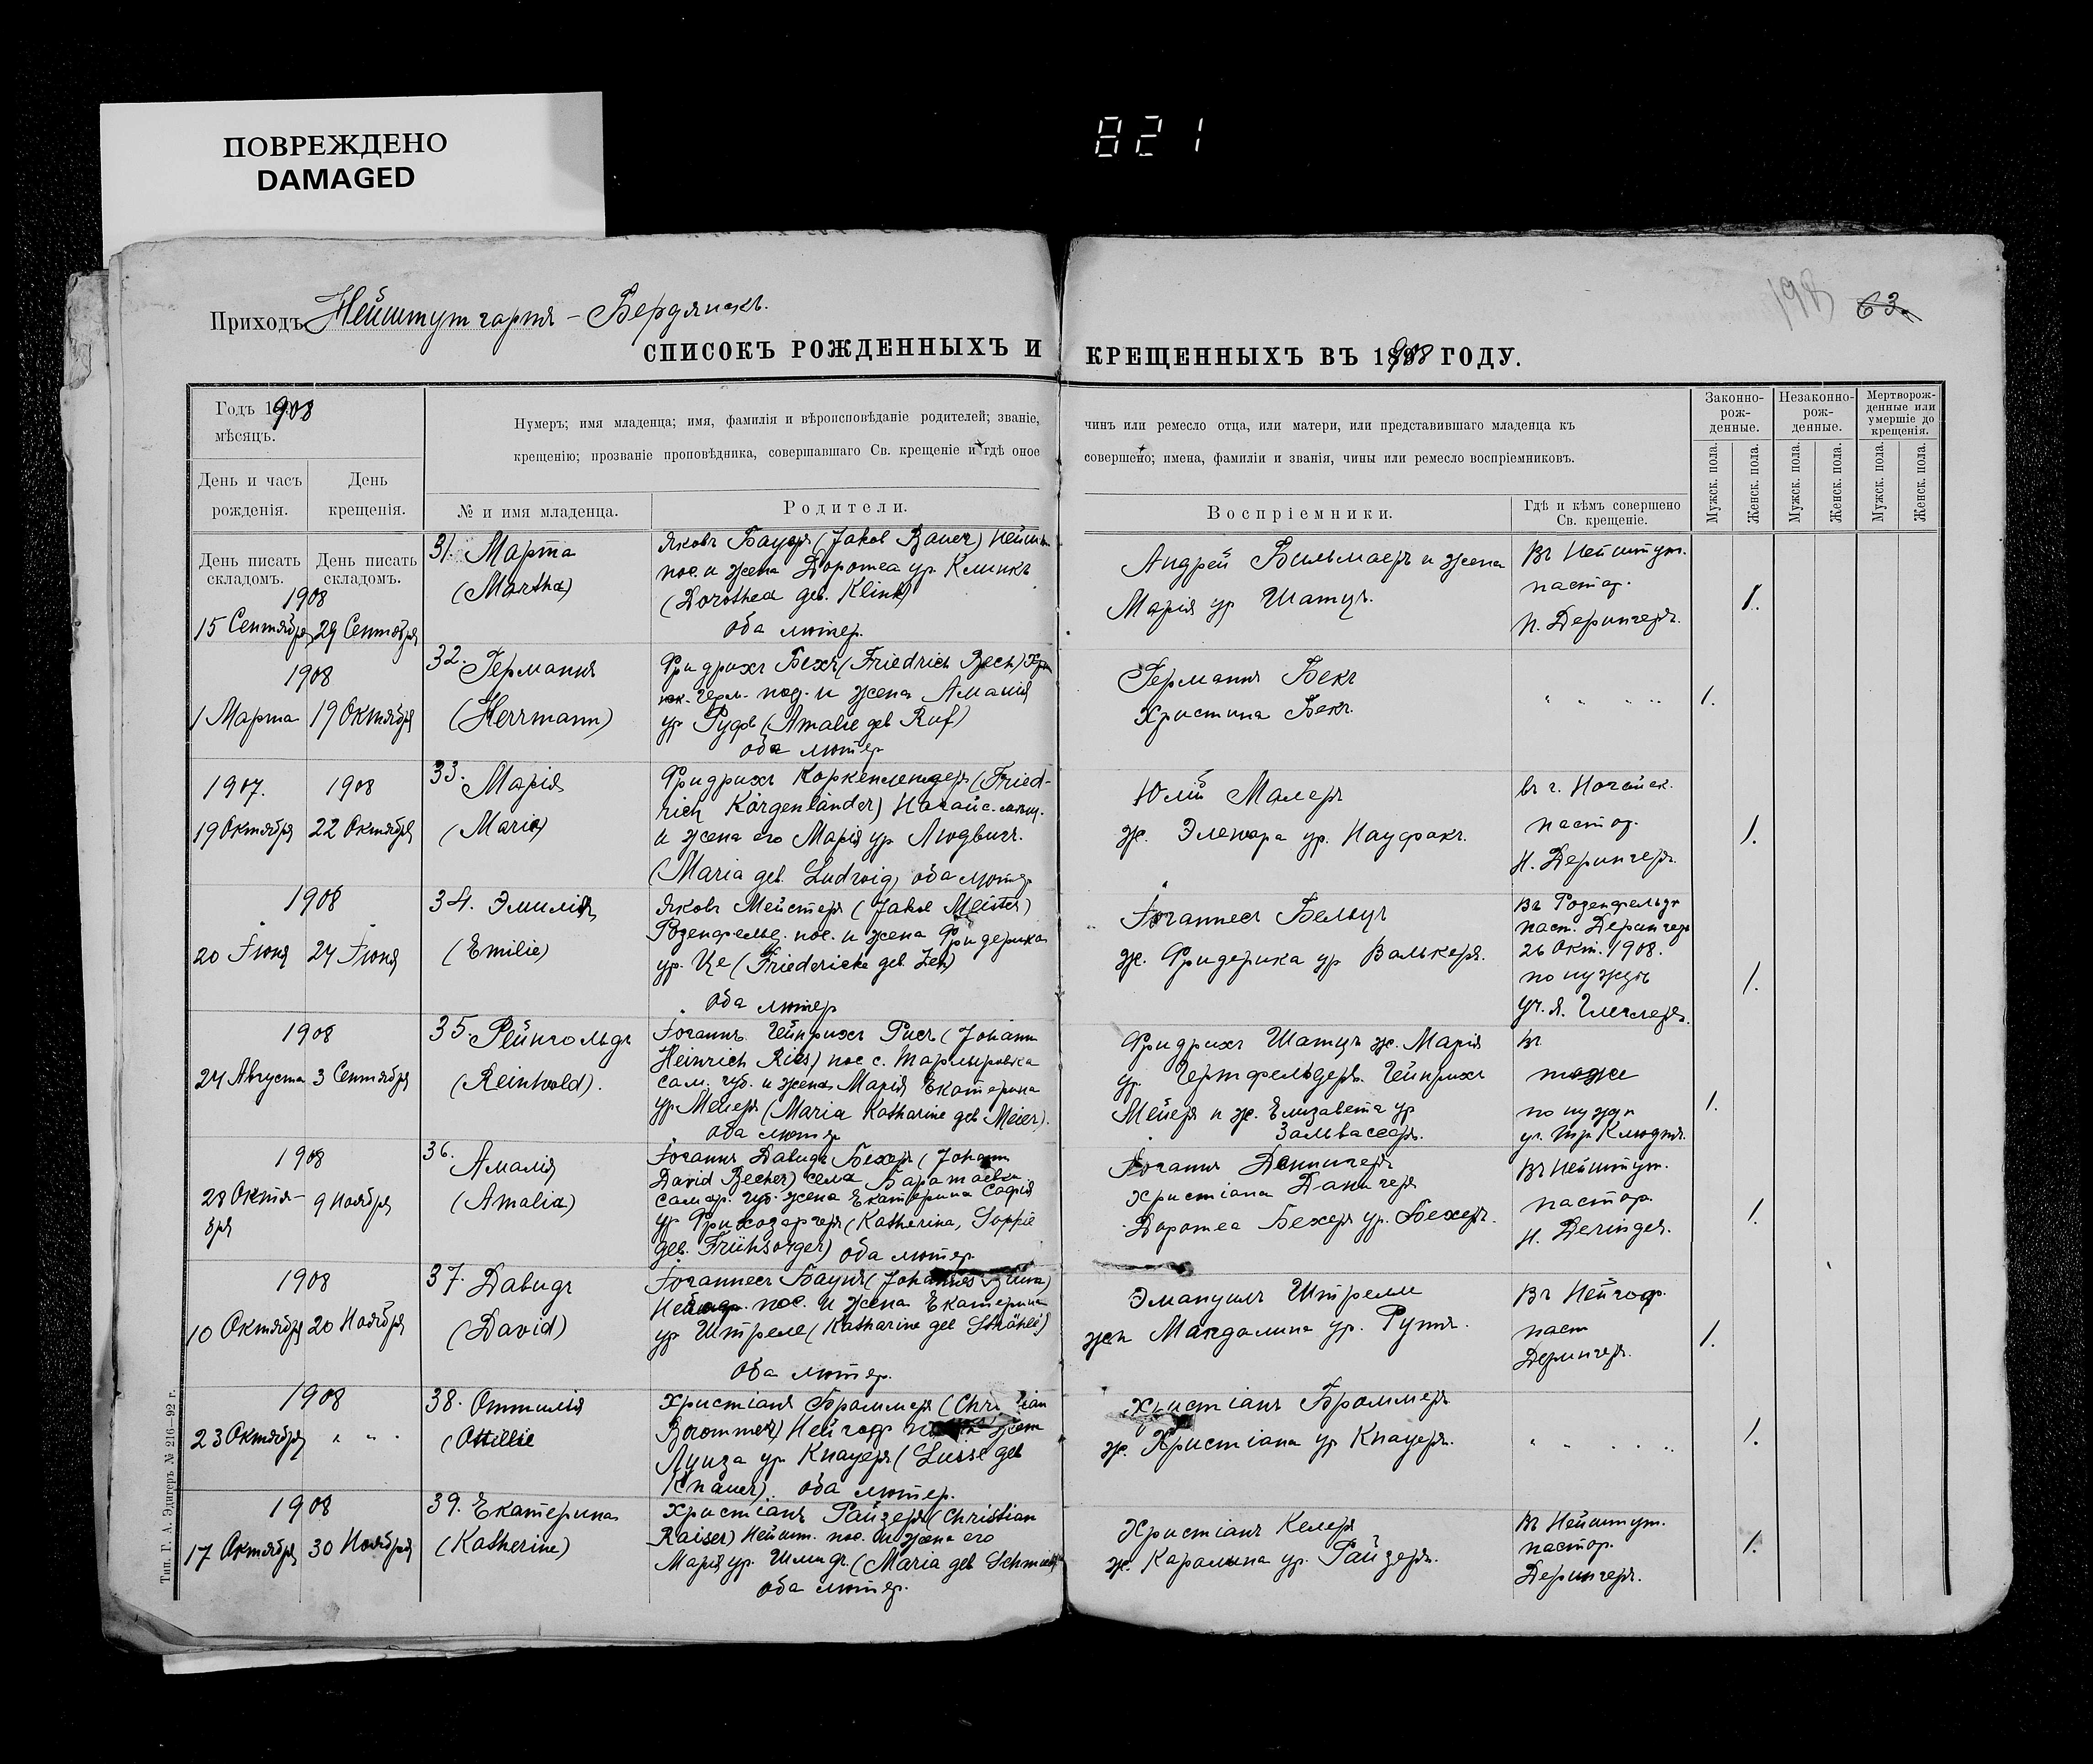 ПОВРЕЖДЕНО
DAMAGED
821
198 63
Приходъ Нейштутгартъ – Бердянскъ.
СПИСОКЪ РОЖДЕННЫХЪ И КРЕЩЕННЫХЪ ВЪ 1908 ГОДУ.
Годъ 1908
мѣсяцъ.
День и часъ рожденія.
День крещенія.
Нумеръ; имя младенца; имя, фамилія и вѣроисповѣданіе родителей; званіе, чинъ или ремесло отца, или матери, или представившаго младенца къ
крещенію; прозваніе проповѣдника, совершавшаго Св. крещеніе и гдѣ оное совершено; имена, фамиліи и званія, чины или ремесло воспріемниковъ.
№ и имя младенца.
Родители.
Воспріемники.
Гдѣ и кѣмъ совершено
Св. крещеніе.
Законно-
рож-
денные.
Незаконно-
рож-
денные.
Мертворож-
денные или
умершіе до
крещенія.
Мужск. пола.
Женск. пола.
Мужск. пола.
Женск. пола.
Мужск. пола.
Женск. пола.
День писать
складомъ.
День писать
складомъ.
1908
15 Сентября 29 Сентября
31. Марта
(Martha)
Яковъ Бауеръ (Jakob Bauer) Нейшт.
пос. и жена Доротеа ур. Клинкъ
(Dorothea geb. Klink)
оба лютер.
Андрей Бильмаеръ и жена
Марія ур Шатцъ.
Въ Нейштут.
пастор.
Н. Дерингеръ.
1.
1908
1 Марта 19 Октября
32. Германъ
(Herrmann)
Фридрихъ Бехъ (Friedrich Bech)
герм. под. и жена Амалія
ур Руфъ (Amalie geb Ruf)
оба лютер
Германъ Бекъ
Христина Бекъ.
" " " "
1.
1907. 1908
19 Октября 22 Октября
33. Марія
(Maria)
Фридрихъ Коркенлендеръ (Fried-
rich Körgenländer) Ногайс. мѣщ.
и жена его Марія ур Людвигъ.
(Maria geb. Ludwig) оба лютер
Юлій Малеръ
ж. Эленора ур. Науфакъ.
въ г. Ногайск.
пастор.
Н. Дерингеръ.
1.
1908
20 Іюня 24 Іюня
34. Эмилія
(Emilie)
Яковъ Мейстеръ (Jakob Meister)
Розенфельд. пос. и жена Фридерика
ур. Це (Friedericke geb. Zeh)
оба лютер
Іоганнесъ Бельцъ
ж. Фридерика ур Валькеръ.
Въ Розенфельдъ
паст. Дерингеръ
26 Окт. 1908.
по нуждѣ
уч. Я.
1.
1908
24 Августа 3 Сентября
35. Рейнгольдъ
(Reinhold).
Іоганнъ Гейнрихъ Рисъ (Johann
Heinrich Ries) пос с.
сам. губ. и жена Марія Екатерина
ур Мейеръ (Maria Katharine geb Meier).
оба лютер
Фридрихъ Шатцъ ж. Марія
ур. Гертфельдеръ. Гейнрихъ
Мейеръ и ж. Елизавета ур
Зальвассеръ.
въ
тоже
по нуждѣ
1.
1908
28 Октя-
бря 9 Ноября
36. Амалія
(Amalia)
Іоганнъ Давидъ Бехеръ (Johann
David Becher) села Баратаевка
самар. губ. жена Екатерина Софія
ур Фризоргеръ (Katherina, Sophie
geb. Frühsorger) оба лютер.
Іоганнъ Деннигеръ
Христіана Данигеръ
Доротеа Бехеръ ур. Бехеръ.
Въ Нейштут.
пастор.
H. Deringer.
1.
1908
10 Октября 20 Ноября
37. Давидъ
(David)
Іоганнесъ Баунъ (Johannes
пос. и жена Екатерина
ур Штреле (Katharine geb Strähle)
оба лютер.
Эмануилъ Штреле
жен Магдалина ур. Рутъ.
Въ Нейгоф.
паст
Дерингеръ.
1.
1908
23 Октября " " "
38. Оттилія
(Ottillie
Христіанъ Броммеръ (Christian
Brommer) Нейгоф жена
Луиза ур Кнауеръ (Luise geb
Knauer). оба лютер.
Христіанъ Броммеръ
ж. Христіана ур Кнауеръ.
" " " "
1.
1908
17 Октября 30 Ноября
39. Екатерина
(Katherine)
Христіанъ Райзеръ (Christian
Raiser) Нейшт. пос. и жена его
Марія ур. Шмидъ. (Maria geb Schmidt
оба лютер.
Христіанъ Келеръ
ж. Каролина ур. Райзеръ.
Въ Нейштут.
пастор.
Дерингеръ.
1.
Тип. Г. А. Эдигеръ № 216—92 г.